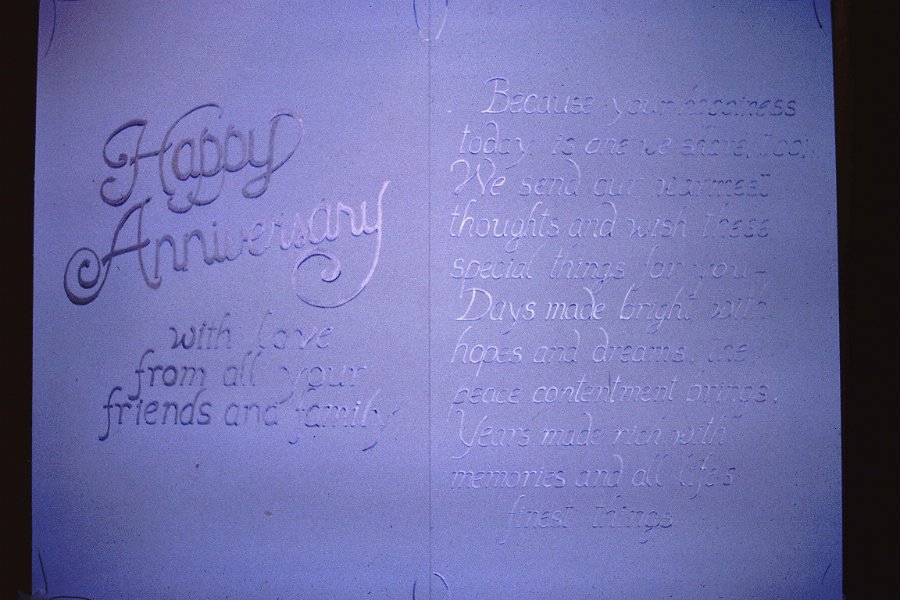 Happy
Anniversary
with love
from all your
friends and family
Because your happiness
today is one we share, too,
We send our warmest
thoughts and wish these
special things for you—
Days made bright with
hopes and dreams, the
peace contentment brings,
Years made rich with
memories and all life's
finest things